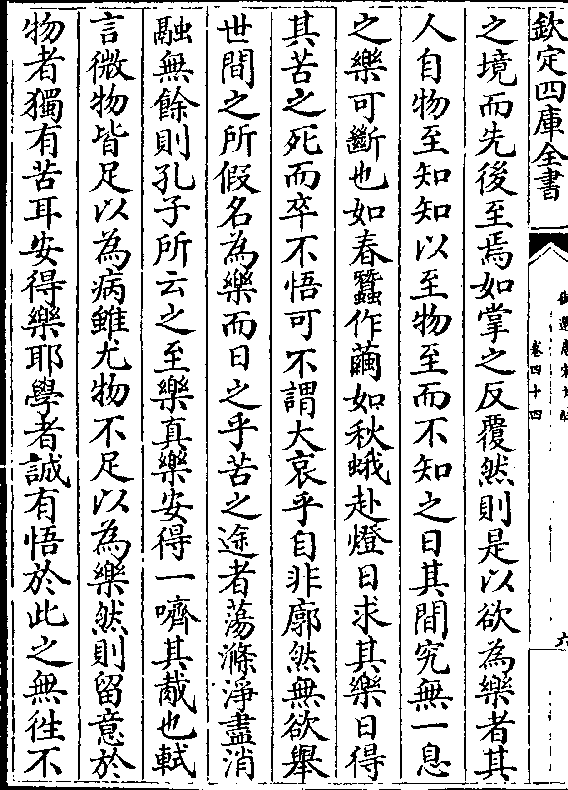 欽定四庫全書
卷四十四
之境而先後至焉如掌之反覆然則是以欲為樂者其
人自物至知知以至物至而不知之日其間究無一息
之樂可斷也如春蠶作繭如秋蛾赴燈日求其樂日得
其苦之死而卒不悟可不謂大哀乎自非廓然無欲舉
世間之所假名為樂而日之乎苦之途者蕩滌淨盡消
融無餘則孔子所云之至樂真樂安得一嚌其胾也軾
言微物皆足以為病雖尤物不足以為樂然則留意於
物者獨有苦耳安得樂耶學者誠有悟於此之無往不